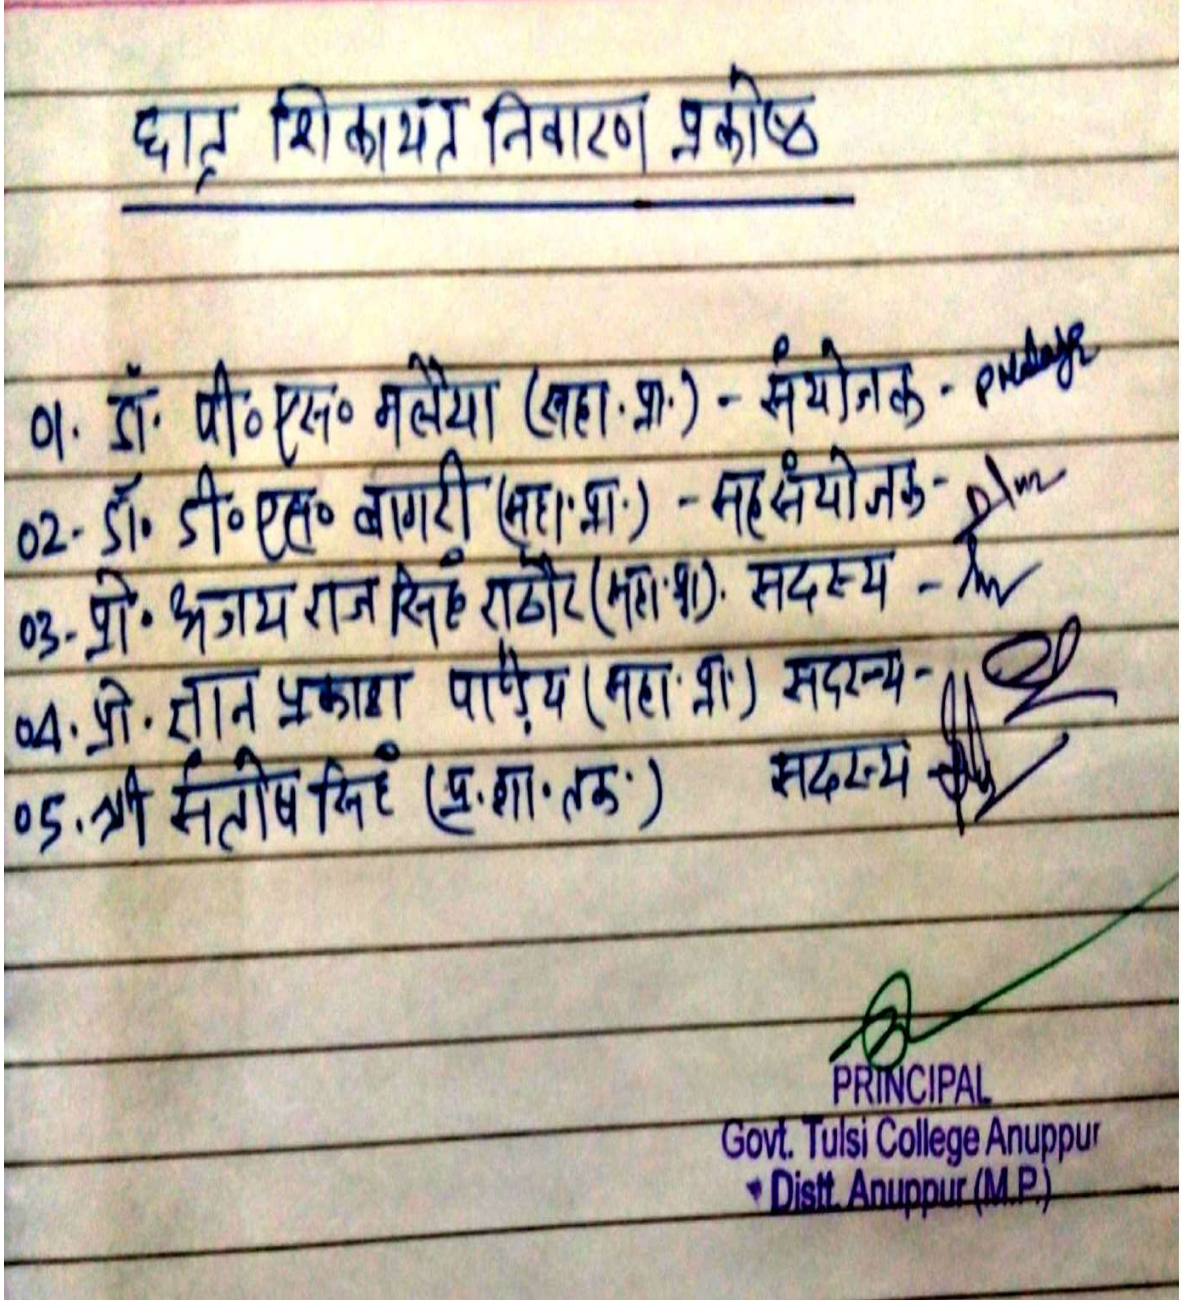 छात्र शिकायत निवारण प्रकोष्ठ
01. डॉ. पी॰ एस॰ मलैया (सहा.प्रा.) - संयोजक -
02- डॉ. डी॰ एस॰ बागरी (सहा.प्रा.) - सहसंयोजक -
03- प्रो. अजय राज सिंह राठौर (सहा.प्रा). सदस्य -
04. प्रो. ज्ञान प्रकाश पाण्डेय (सहा.प्रा.) सदस्य -
05. श्री संतोष सिंह (प्र.शा.तक.) सदस्य -
PRINCIPAL
Govt. Tulsi College Anuppur
Distt. Anuppur (M.P.)